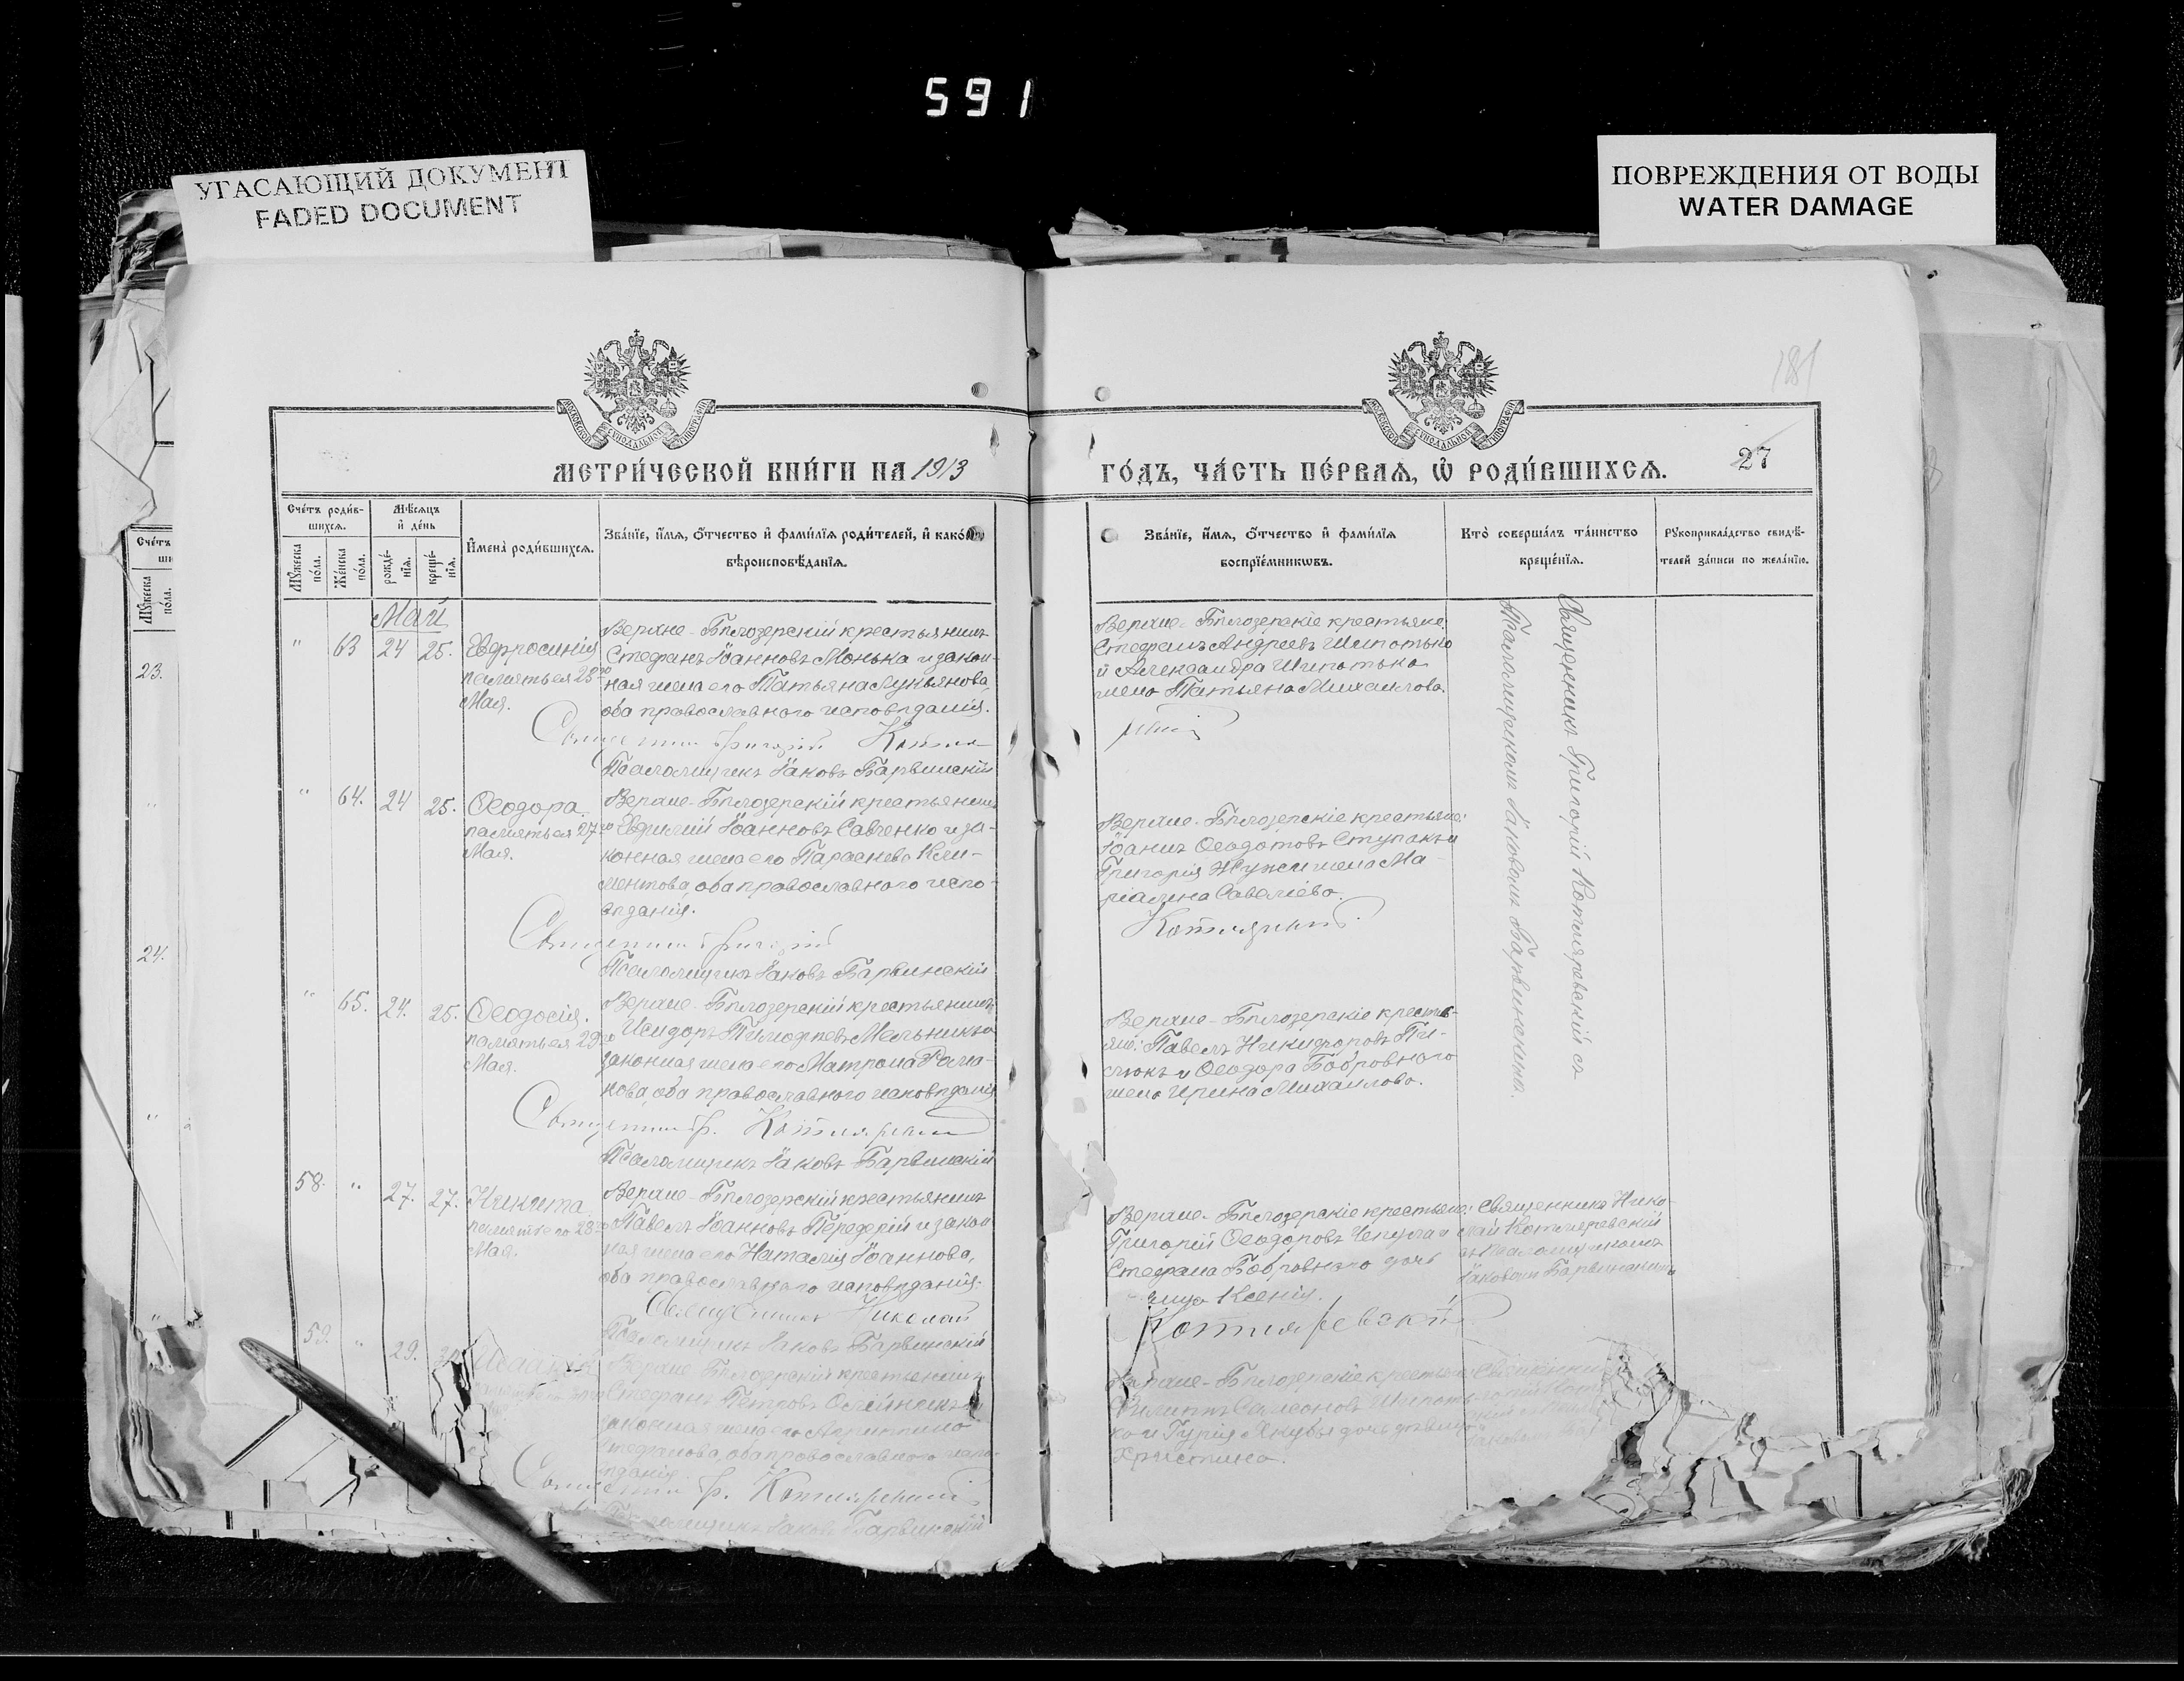 591
УГАСАЮЩИЙ ДОКУМЕНТ
FADED DOCUMENT
ПОВРЕЖДЕНИЯ ОТ ВОДЫ
WATER DAMAGE
181
МОСКОВСКОЙ СѴНОДАЛЬНОЙ ТИПОГРАФІИ
МОСКОВСКОЙ СѴНОДАЛЬНОЙ ТИПОГРАФІИ
МЕТРИ́ЧЕСКОЙ КНИ́ГИ НА 1913
ГО́ДЪ, ЧА́СТЬ ПЕ́РВАѦ, Ѡ҆ РОДИ́ВШИХСѦ.
27
Счетъ родив-
шихсѧ.
Мѣсѧцъ
и день
Мꙋжеска
пола.
Женска
пола.
рожде-
нїѧ.
креще-
нїѧ.
Имена родившихсѧ.
Званїе, имѧ, отчество и фамилїѧ родителей, и какого
вѣроисповѣданїѧ.
Званїе, имѧ, отчество и фамилїѧ
воспрїемникѡвъ.
Кто совершалъ таинство
крещенїѧ.
Рꙋкоприкладство свидѣ-
телей записи по желанїю.
Счетъ
ши
Мꙋжеска
пола.
23.
24.
Май
" 63 24 25.
Евфросинія
память ея 28го
Мая.
Верхне-Бѣлозерскій крестьянинъ
Стефанъ Іоанновъ Монька и закон-
ная жена его Татьяна Лукьянова,
оба православнаго исповѣданія.
Священникъ Григорій
Псаломщикъ Іаковъ Барвинскій
Верхне-Бѣлозерскіе крестьяне:
Стефанъ Андреевъ Шипотько
и Александра Шипотька
жена Татьяна Михаилова.
Священникъ Григорій Котляревскій съ
Псаломщикомъ Іаковомъ Барвинскимъ.
" 64. 24 25.
Ѳеодора.
память ея 27го
Мая.
Верхне-Бѣлозерскій крестьянинъ
Евфимій Іоанновъ Савченко и за-
конная жена его Параскева Кли-
ментова, оба православнаго испо-
вѣданія.
Священникъ Григорій
Псаломщикъ Іаковъ Барвинскій
Верхне-Бѣлозерскіе крестьяне:
Іоаннъ Ѳеодотовъ Ступакъ и
Григорія жена Ма-
ріамна Савеліева.
" 65. 24. 25.
Ѳеодосія.
память ея 29го
Мая.
Верхне-Бѣлозерскій крестьянинъ
Исидоръ Тимоѳеевъ Мельникъ и
законная жена его Матрона Рома-
нова, оба православнаго исповѣданія
Священникъ Гр. Котляревскій
Псаломщикъ Іаковъ Барвинскій
Верхне-Бѣлозерскіе кресть-
яне: Павелъ Никифоровъ
и Ѳеодора Бобровнаго
жена Ирина Михаилова.
58. " 27. 27.
Никита.
память его 28го
Мая.
Верхне-Бѣлозерскій крестьянинъ
Павелъ Іоанновъ Передерій и закон-
ная жена его Наталія Іоаннова,
оба православнаго исповѣданія.
Священникъ Николай
Псаломщикъ Іаковъ Барвинскій
Верхне-Бѣлозерскіе крестьяне:
Григорій Ѳеодоровъ и
Стефана Бобровнаго дочь
Ксенія.
Котляревскій
Священникъ Нико-
лай Котляревскій
съ псаломщикомъ
Іаковомъ Барвинскимъ
59. " 29. 30
Верхне-Бѣлозерскій крестьянинъ
Стефанъ Петровъ Олейникъ и
законная жена его Агриппина
Стефанова, оба православнаго испо-
вѣданія.
Священникъ Гр. Котляревскій
Псаломщикъ Іаковъ Барвинскій
Верхне-Бѣлозерскіе крестьяне:
Филиппъ Самсоновъ Шипоть-
ко и Гурія дочь дѣвица
Христина.
Священникъ